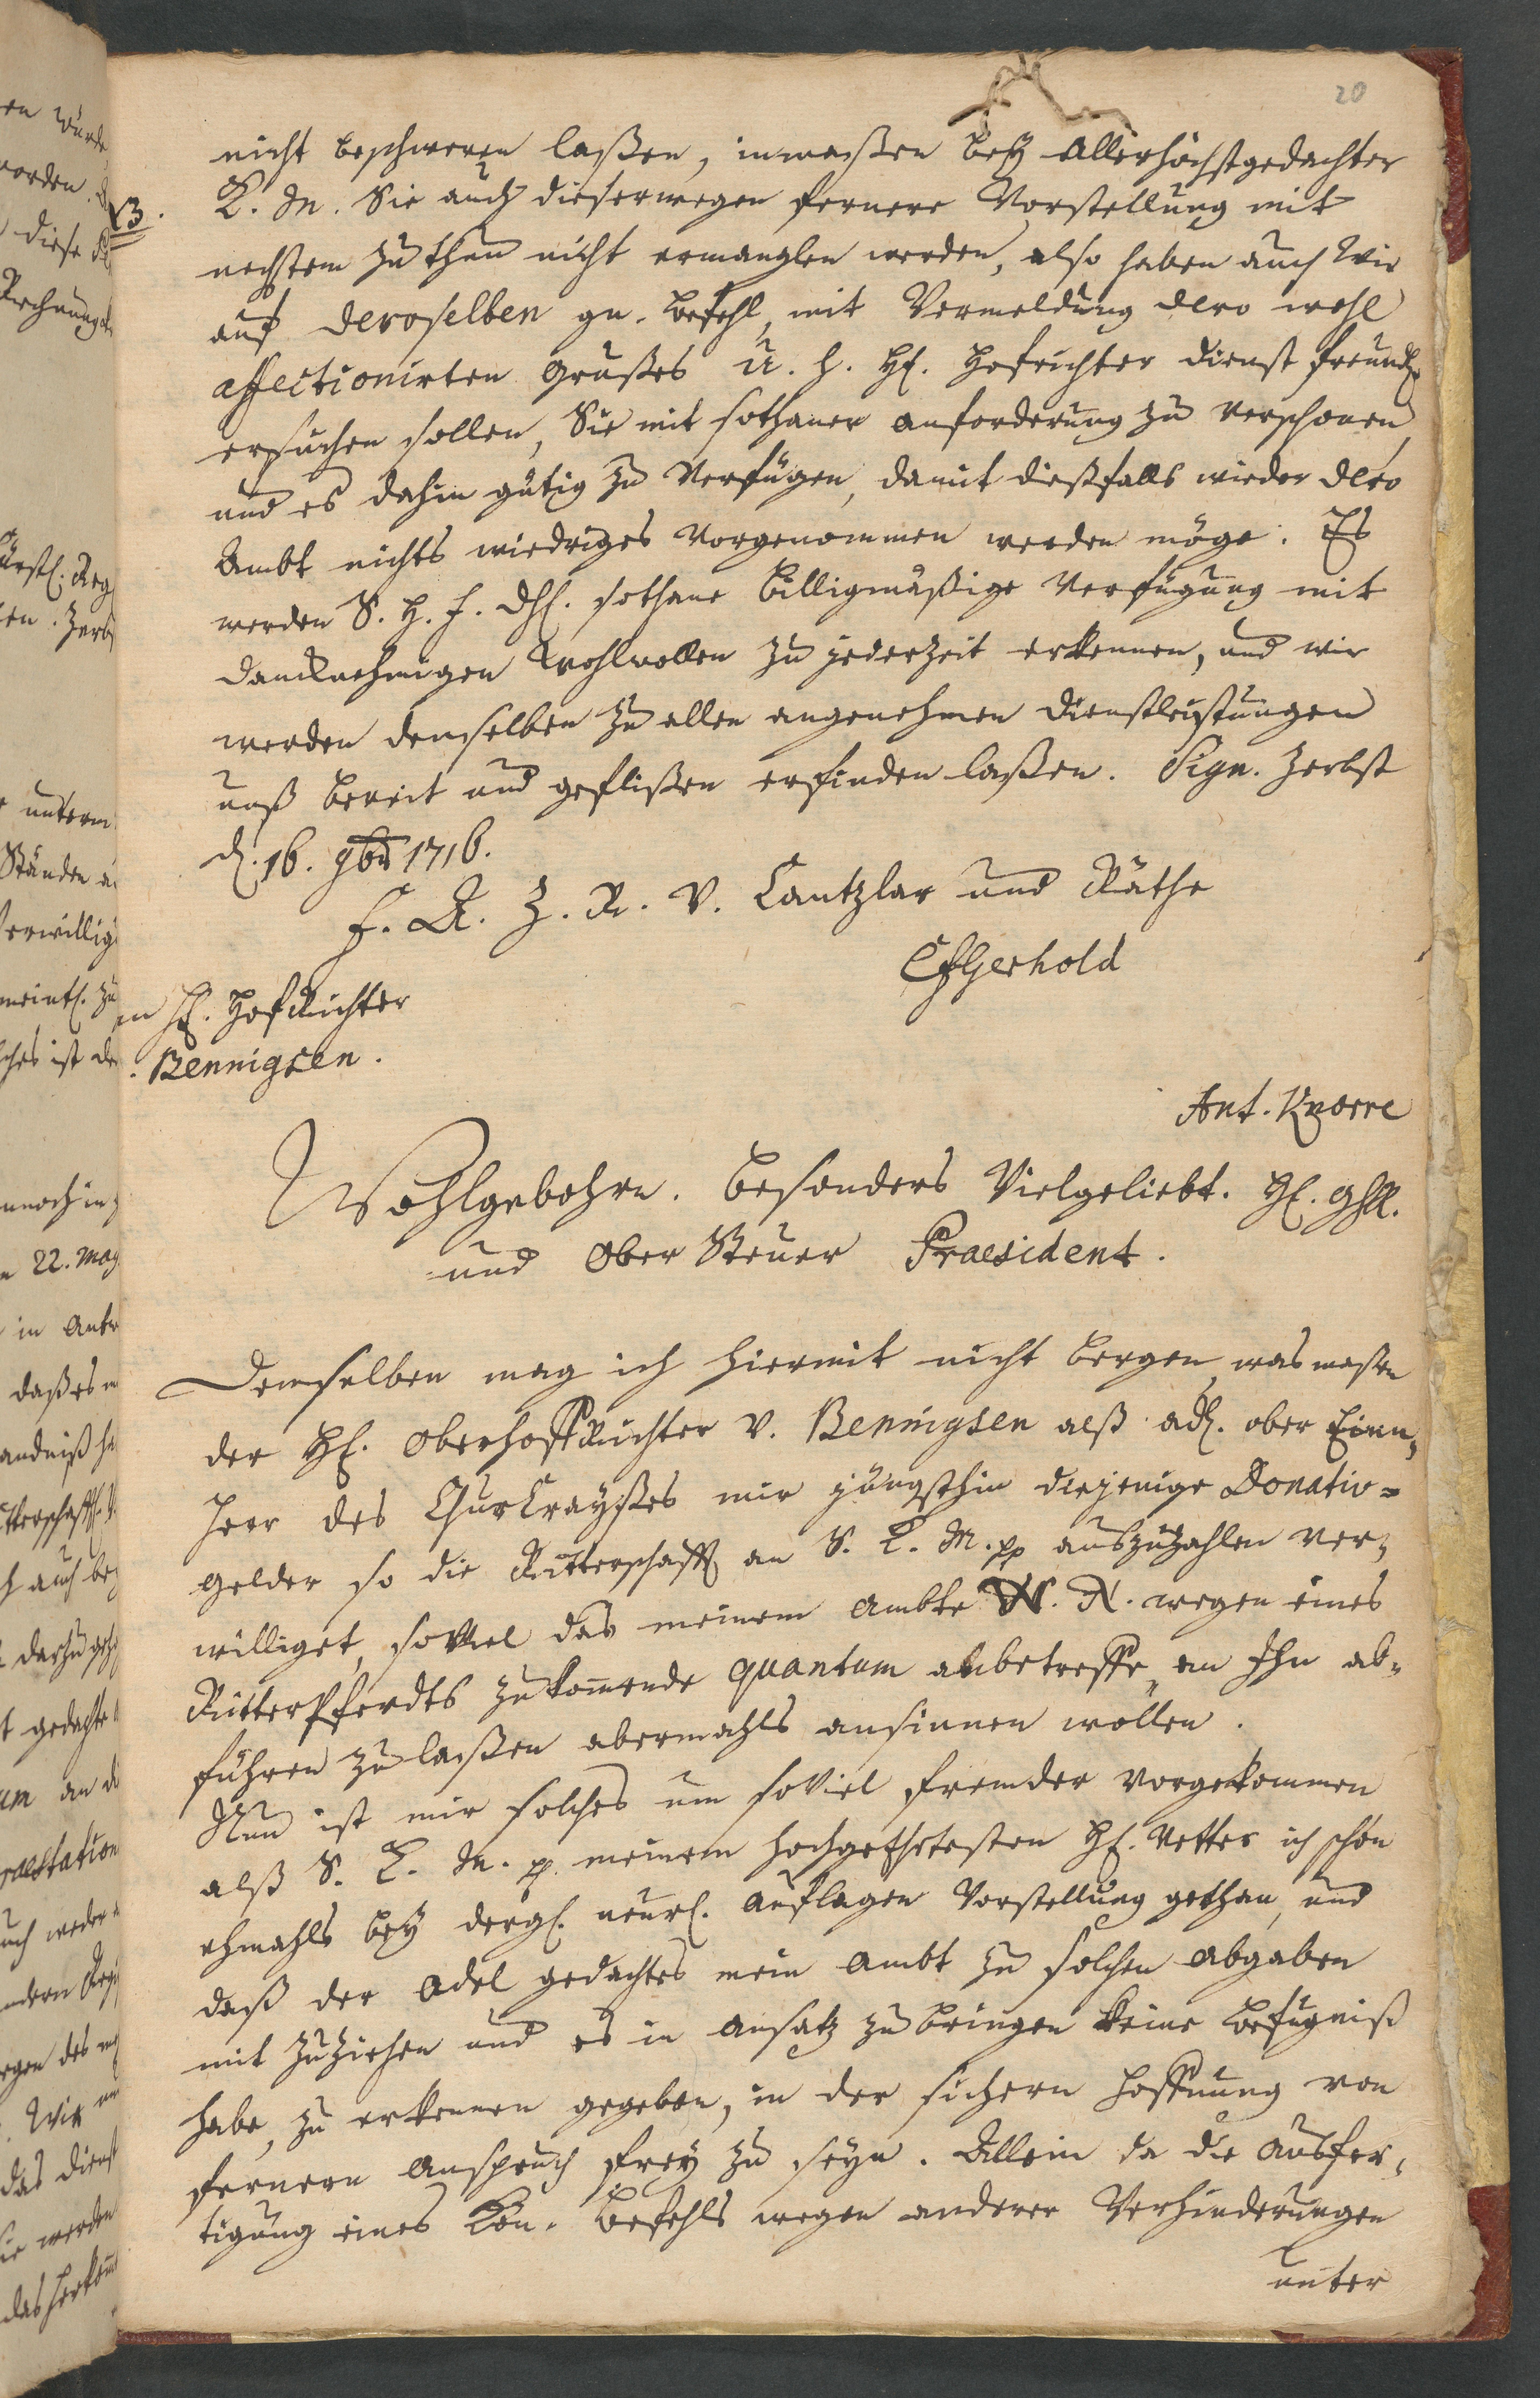 20
nicht beschweren laßen, inmaßen bey Allerhöchstgedachter
13.
K. M. Sie auch dieserwegen fernere Vorstellung mit
nechstem zu thun nicht ermanglen werden, also haben auch Wir
auf deroselben gn. Befehl, mit Vermeldung dero wohl
affectionirten Grußes u. h. Hl. Hofrichter dienst freundl.
ersuchen sollen, Sie mit sothaner anforderung zu verschonen
und es dahin gütig zu Verfügen, damit dießfalls wieder dero
Ambt nichts wiedriges vorgenommen werden möge. Es
werden S. H. F. Dhl. sothane billigmäßige Verfügung mit
dancknehmigen Wohlwollen zu jederzeit erkennen, und wir
werden demselben zu allen angenehmen Dienstleistungen
unß bereit und geflißen erfinden laßen. Sign. Zerbst
d. 16. 9br 1716.
F. A. Z. R. V. Cantzlar und Räthe
CfGerhold
an Hl. Hofrichter
Bennigsen.
Ant. Knorre
Wohlgebohrn. besonders Vielgeliebt. Hl. Ghll.
und Ober Steuer Praesident.
Demselben mag ich hiermit nicht bergen, was maßen
der Hl. OberhoffRichter v. Bennigsen alß adl. ober Einn,
Herr des ChurCrayßes mir jüngsthin diejenige Donativ-
gelder so die Ritterschafft an S. K. M. pp auszuzahlen ver,
williget, soviel das meinem Ambte W. N. wegen eines
RitterPferdts zukommende quantum anbetreffe, an Ihn ab-
führen zu laßen abermahls ansinnen wollen.
Nun ist mir solches um soviel frembder vorgekommen
alß S. K. M. p. meinem Hochgeehrtesten Hl. Vetter ich schon
ehmahls bey dergl. neuerl. Auflagen Vorstellung gethan, und
daß der Adel gedachtes mein Ambt zu solchen abgaben
mit zuziehen und es in Ansatz zu bringen keine Befugniß
habe, zu erkennen gegeben, in der sichern Hoffnung von
fernern Anspruch frey zu seyn. Allein da die Ausfer,
tigung eines Kön. Befehls wegen anderer Verhinderungen
unter